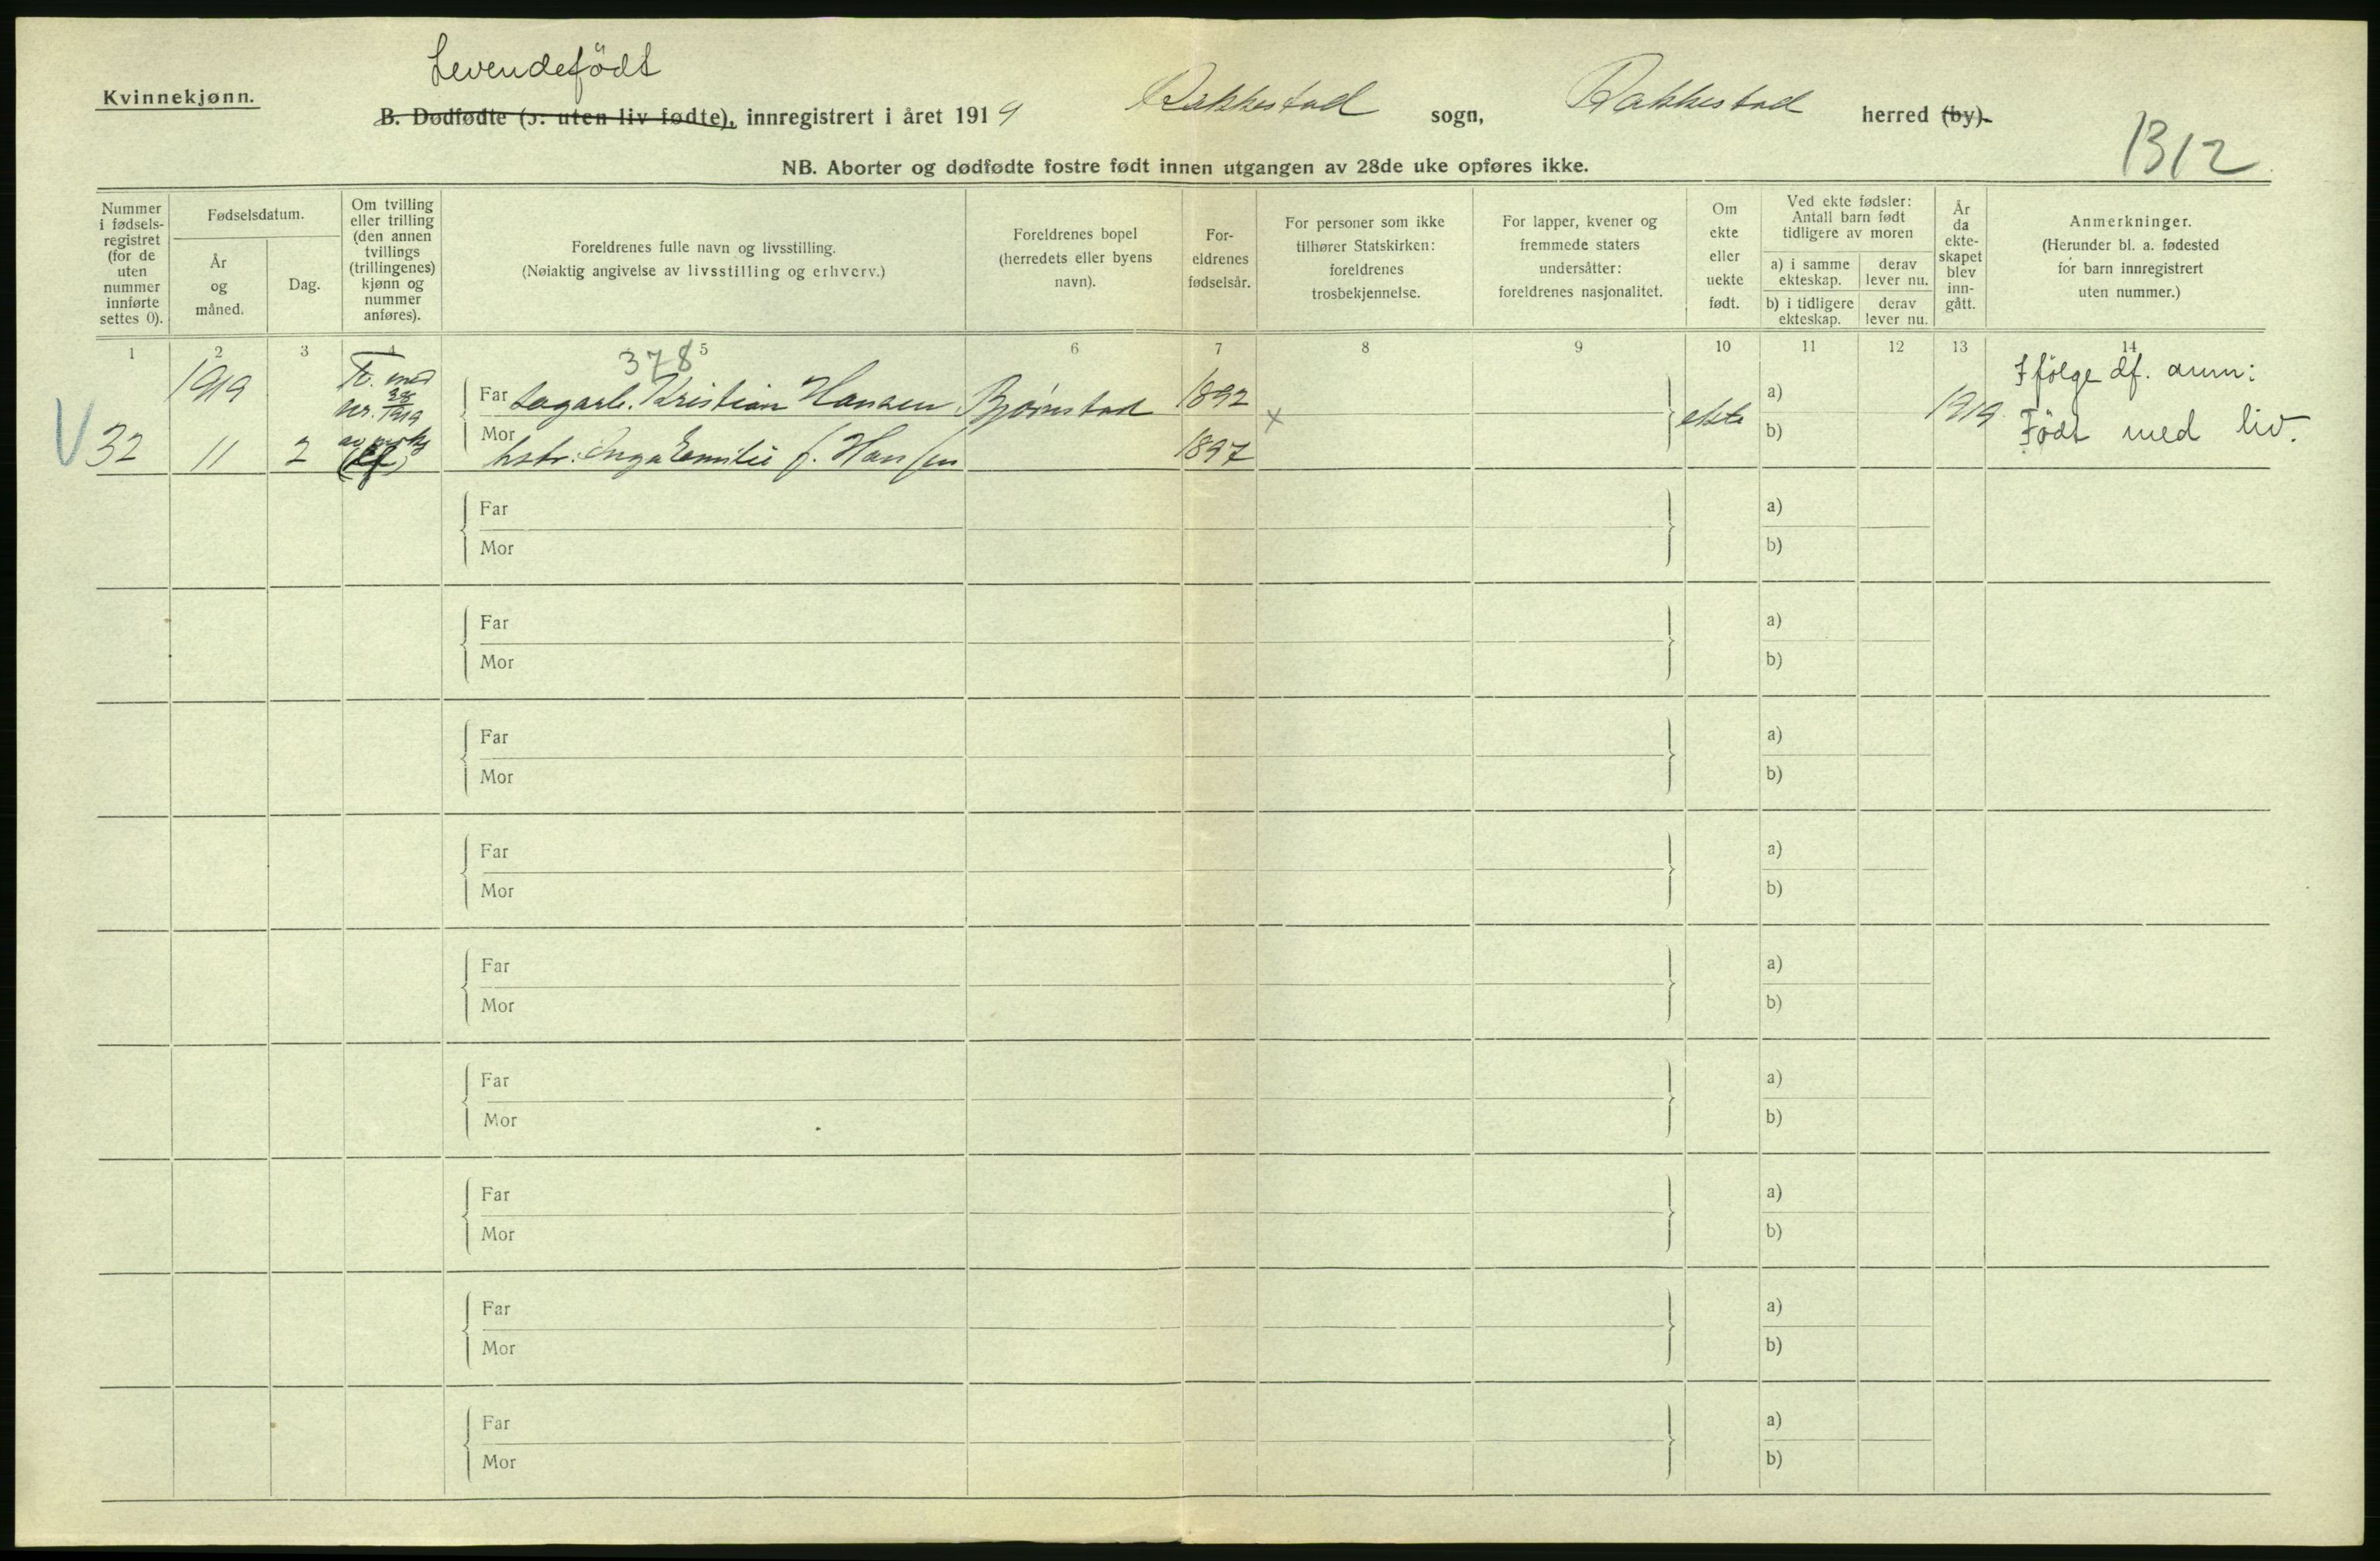 Levendefödt
Kvinnekjønn.
B. Dødfødte (ɔ: uten liv fødte), innregistrert i året 1919 Rakkestad sogn, Rakkestad herred (by).
1312
NB. Aborter og dødfødte fostre født innen utgangen av 28de uke opføres ikke.
Nummer
i fødsels-
registret
(for de
uten
nummer
innførte
settes 0).
Fødselsdatum.
År
og
måned.
Dag.
Om tvilling
eller trilling
(den annen
tvillings
(trillingenes)
kjønn og
nummer
anføres).
Foreldrenes fulle navn og livsstilling.
(Nøiaktig angivelse av livsstilling og erhverv.)
Foreldrenes bopel
(herredets eller byens
navn).
For-
eldrenes
fødselsår.
For personer som ikke
tilhører Statskirken:
foreldrenes
trosbekjennelse.
For lapper, kvener og
fremmede staters
undersåtter:
foreldrenes nasjonalitet.
Om
ekte
eller
uekte
født.
Ved ekte fødsler:
Antall barn født
tidligere av moren
a) i samme
ekteskap.
derav
lever nu.
b) i tidligere
ekteskap.
derav
lever nu.
År
da
ekte-
skapet
blev
inn-
gått.
Anmerkninger.
(Herunder bl. a. fødested
for barn innregistrert
uten nummer.)
1 2 3 4 5 6 7 8 9 10 11 12 13 14
378
1919
Tv. med
nr. 28/1919
V 32 11 2
Far Sagarb. Kristian Hansen Bjørnstad 1892 x
Mor hstr: Inga Emilie f. Hansen 1897
ekte
a)
b)
1919
Ifölge df. anm:
Födt med liv.
Far a)
Mor b)
Far a)
Mor b)
Far a)
Mor b)
Far a)
Mor b)
Far a)
Mor b)
Far a)
Mor b)
Far a)
Mor b)
Far a)
Mor b)
Far a)
Mor b)